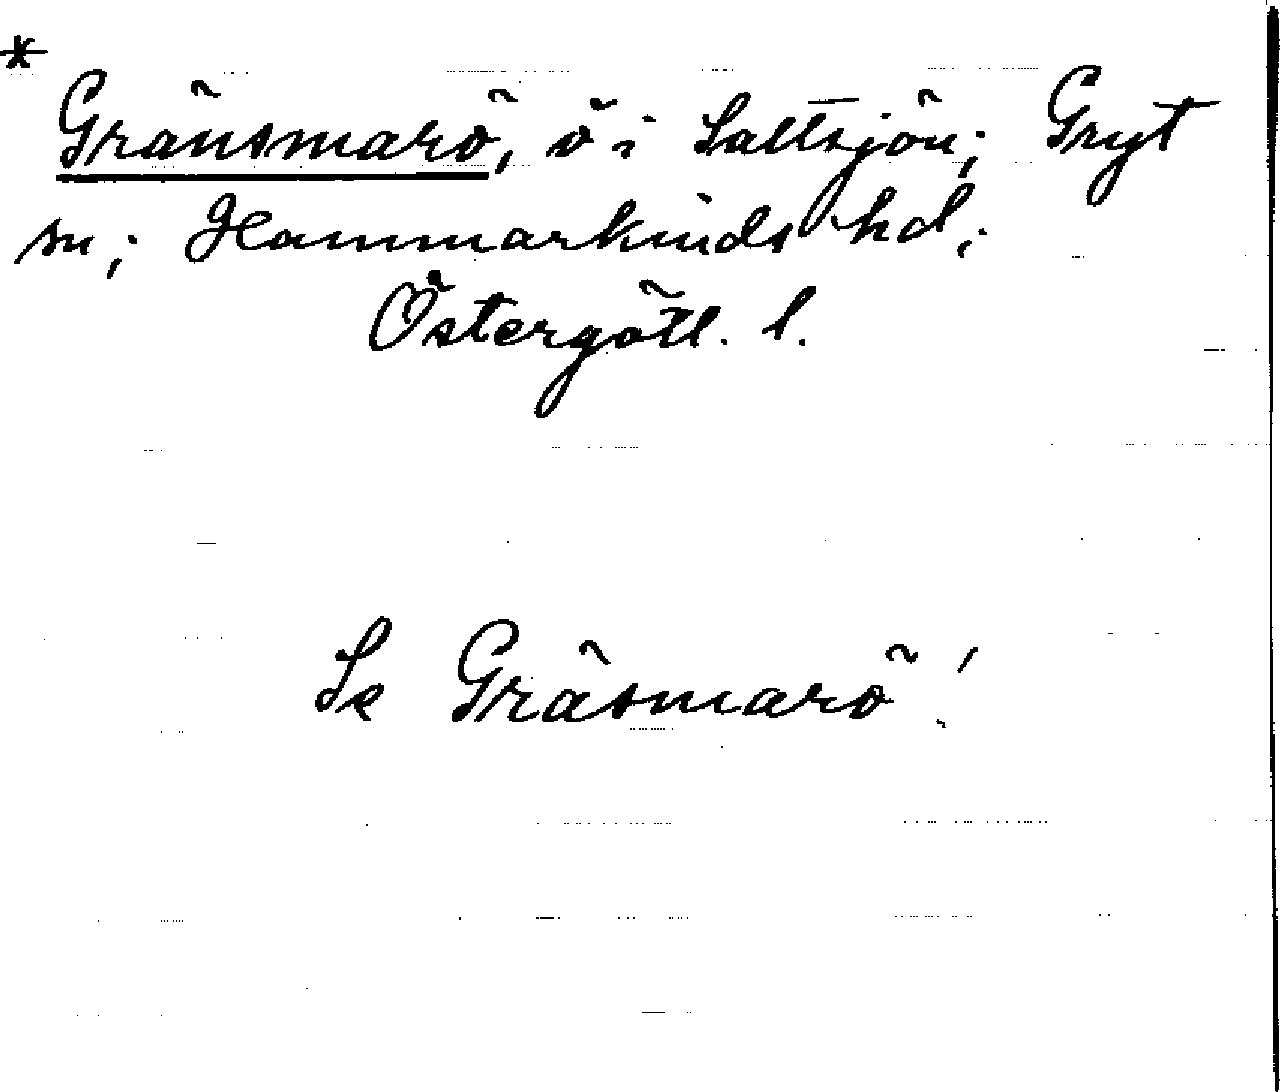 *
Gränsmarö, ö i Saltsjön; Gryt
sn; Hammarkinds hd;
Östergötl. l.
Se Gräsmarö!